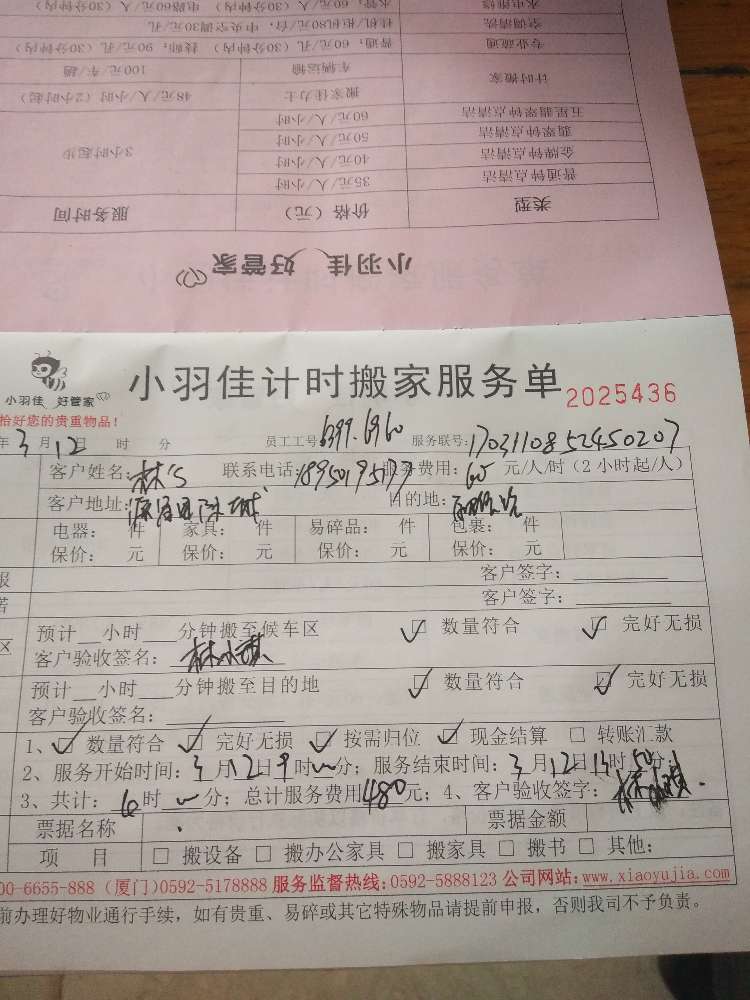 水电维修 水管，60元/人（30分钟内） 电路60元/人（30分钟内）
空调清洗 挂机/柜机80元/台，中央空调30元/孔
专业疏通 普通，60元/孔（30分钟内） 技师，90元/孔（30分钟内）
计时搬家 车辆运输 100元/车/趟
搬家佳力士 48元/人/小时（2小时起）
五星翡翠钟点清洁 60元/人/小时
翡翠钟点清洁 50元/人/小时
金牌钟点清洁 40元/人/小时 3小时起步
普通钟点清洁 35元/人/小时
类型 价格（元） 服务时间
小羽佳 好管家
小羽佳 好管家
小羽佳计时搬家服务单 2025436
恰好您的贵重物品！
年3月12日 时 分 员工工号 服务联号：1703110852450207
客户姓名：林's 联系电话：18950195177 服务费用：60元/人/时（2小时起/人）
客户地址： 目的地：
电器： 件 家具： 件 易碎品： 件 包裹： 件
保价： 元 保价： 元 保价： 元 保价： 元
报 客户签字：
诺 客户签字：
预计 小时 分钟搬至候车区 数量符合 完好无损
区 客户验收签名：
预计 小时 分钟搬至目的地 数量符合 完好无损
客户验收签名：
1、 数量符合 完好无损 按需归位 现金结算 转账汇款
2、服务开始时间：3月12日9时 分；服务结束时间：3月12日13时50分；
3、共计： 时 分；总计服务费用480元；4、客户验收签字：
票据名称 票据金额
项 目 搬设备 搬办公家具 搬家具 搬书 其他：
00-6655-888（厦门）0592-5178888 服务监督热线：0592-5888123 公司网站：www.xiaoyujia.com
前办理好物业通行手续，如有贵重、易碎或其它特殊物品请提前申报，否则我司不予负责。